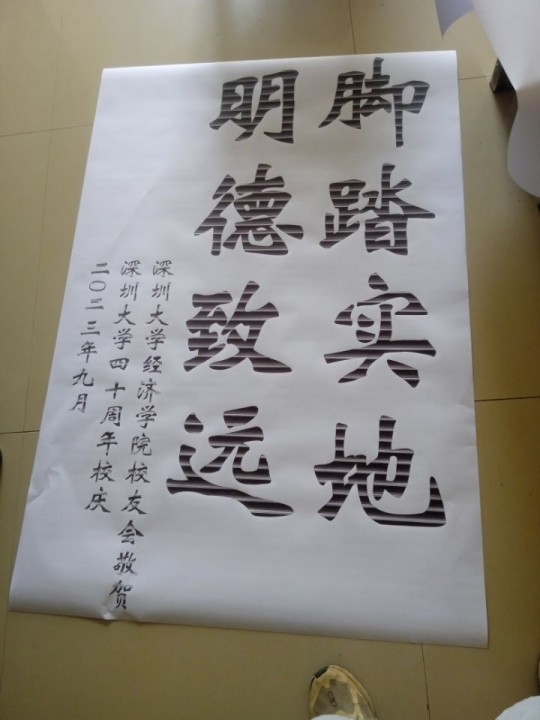 脚踏实地
明德致远
深圳大学经济学院校友会敬贺
深圳大学四十周年校庆
二〇二三年九月